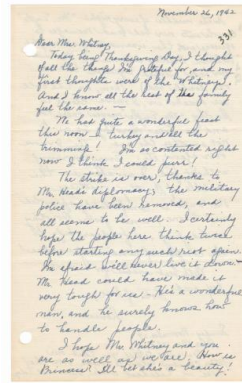 November 26, 1942
331
Dear Mrs. Whitney,
Today being Thanksgiving Day, I thought
of all the things I'm grateful for, and my
first thoughts were of the Whitneys!
And I know all the rest of the family
feel the same. —
We had quite a wonderful feast
this noon! Turkey and all the
trimmings! I'm so contented right
now I think I could purr!
The strike is over, thanks to
Mr. Head's diplomacy; the military
police have been removed, and
all seems to be well. I certainly
hope the people here think twice
before starting any such riot again.
I'm afraid we'll never live it down —
Mr. Head could have made it
very tough for us — He's a wonderful
man, and he surely knows how
to handle people.
I hope Mr. Whitney and you
are as well as we are. How is
Princess? I'll bet she's a beauty!